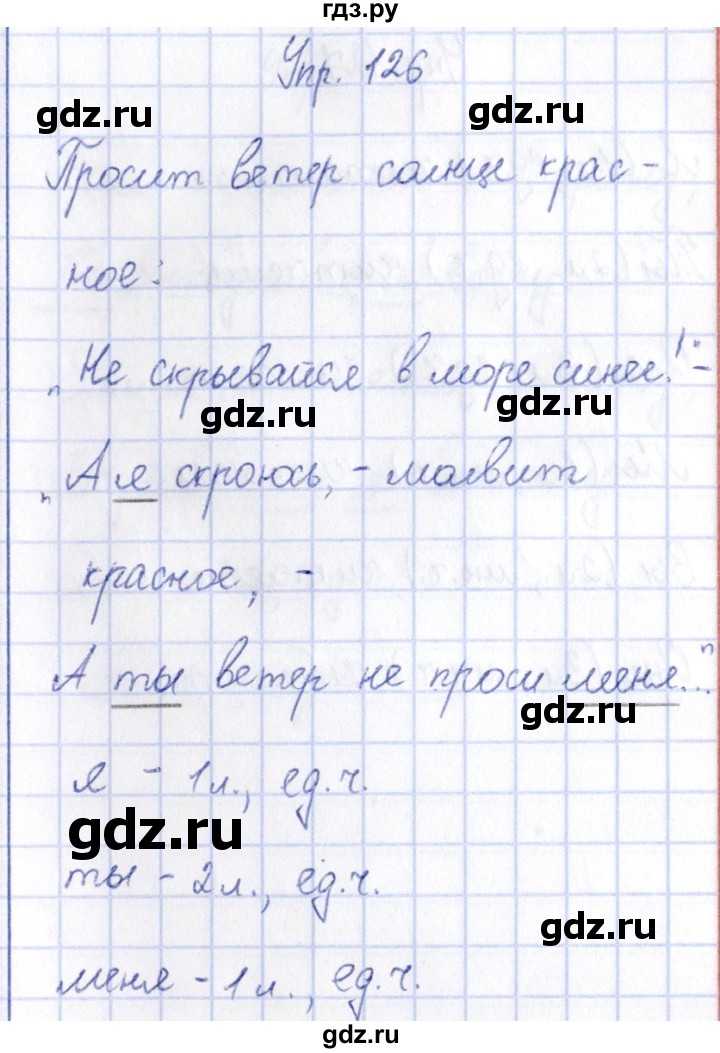 гдз.ру
Упр. 126
gdz.ru
gdz.ru
Просит ветер солнце крас-
ное:
„Не скрывайся в море синее!" -
gdz.ru
gdz.ru
„А я скроюсь, - молвит
красное, -
А ты ветер не проси меня..."
gdz.ru
я - 1 л., ед.ч.
gdz.ru
ты - 2 л., ед.ч.
gdz.ru
меня - 1 л., ед.ч.
gdz.ru